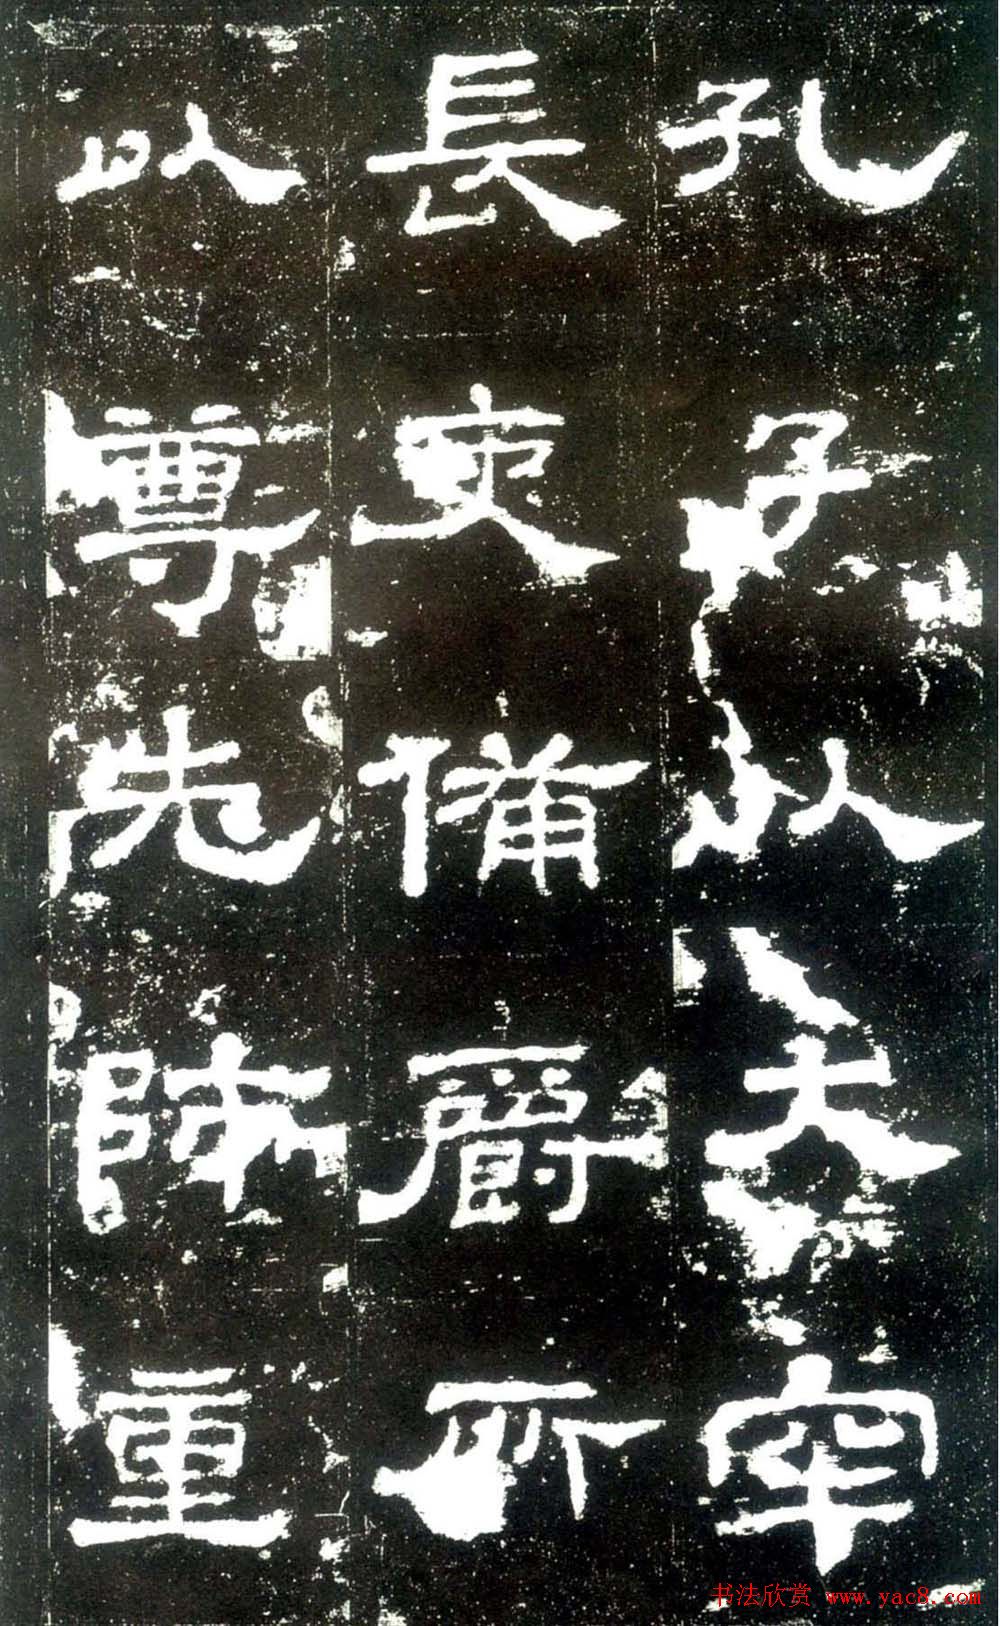 孔子以大牢
長吏備爵所
以尊先師重
书法欣赏 www.yac8.com